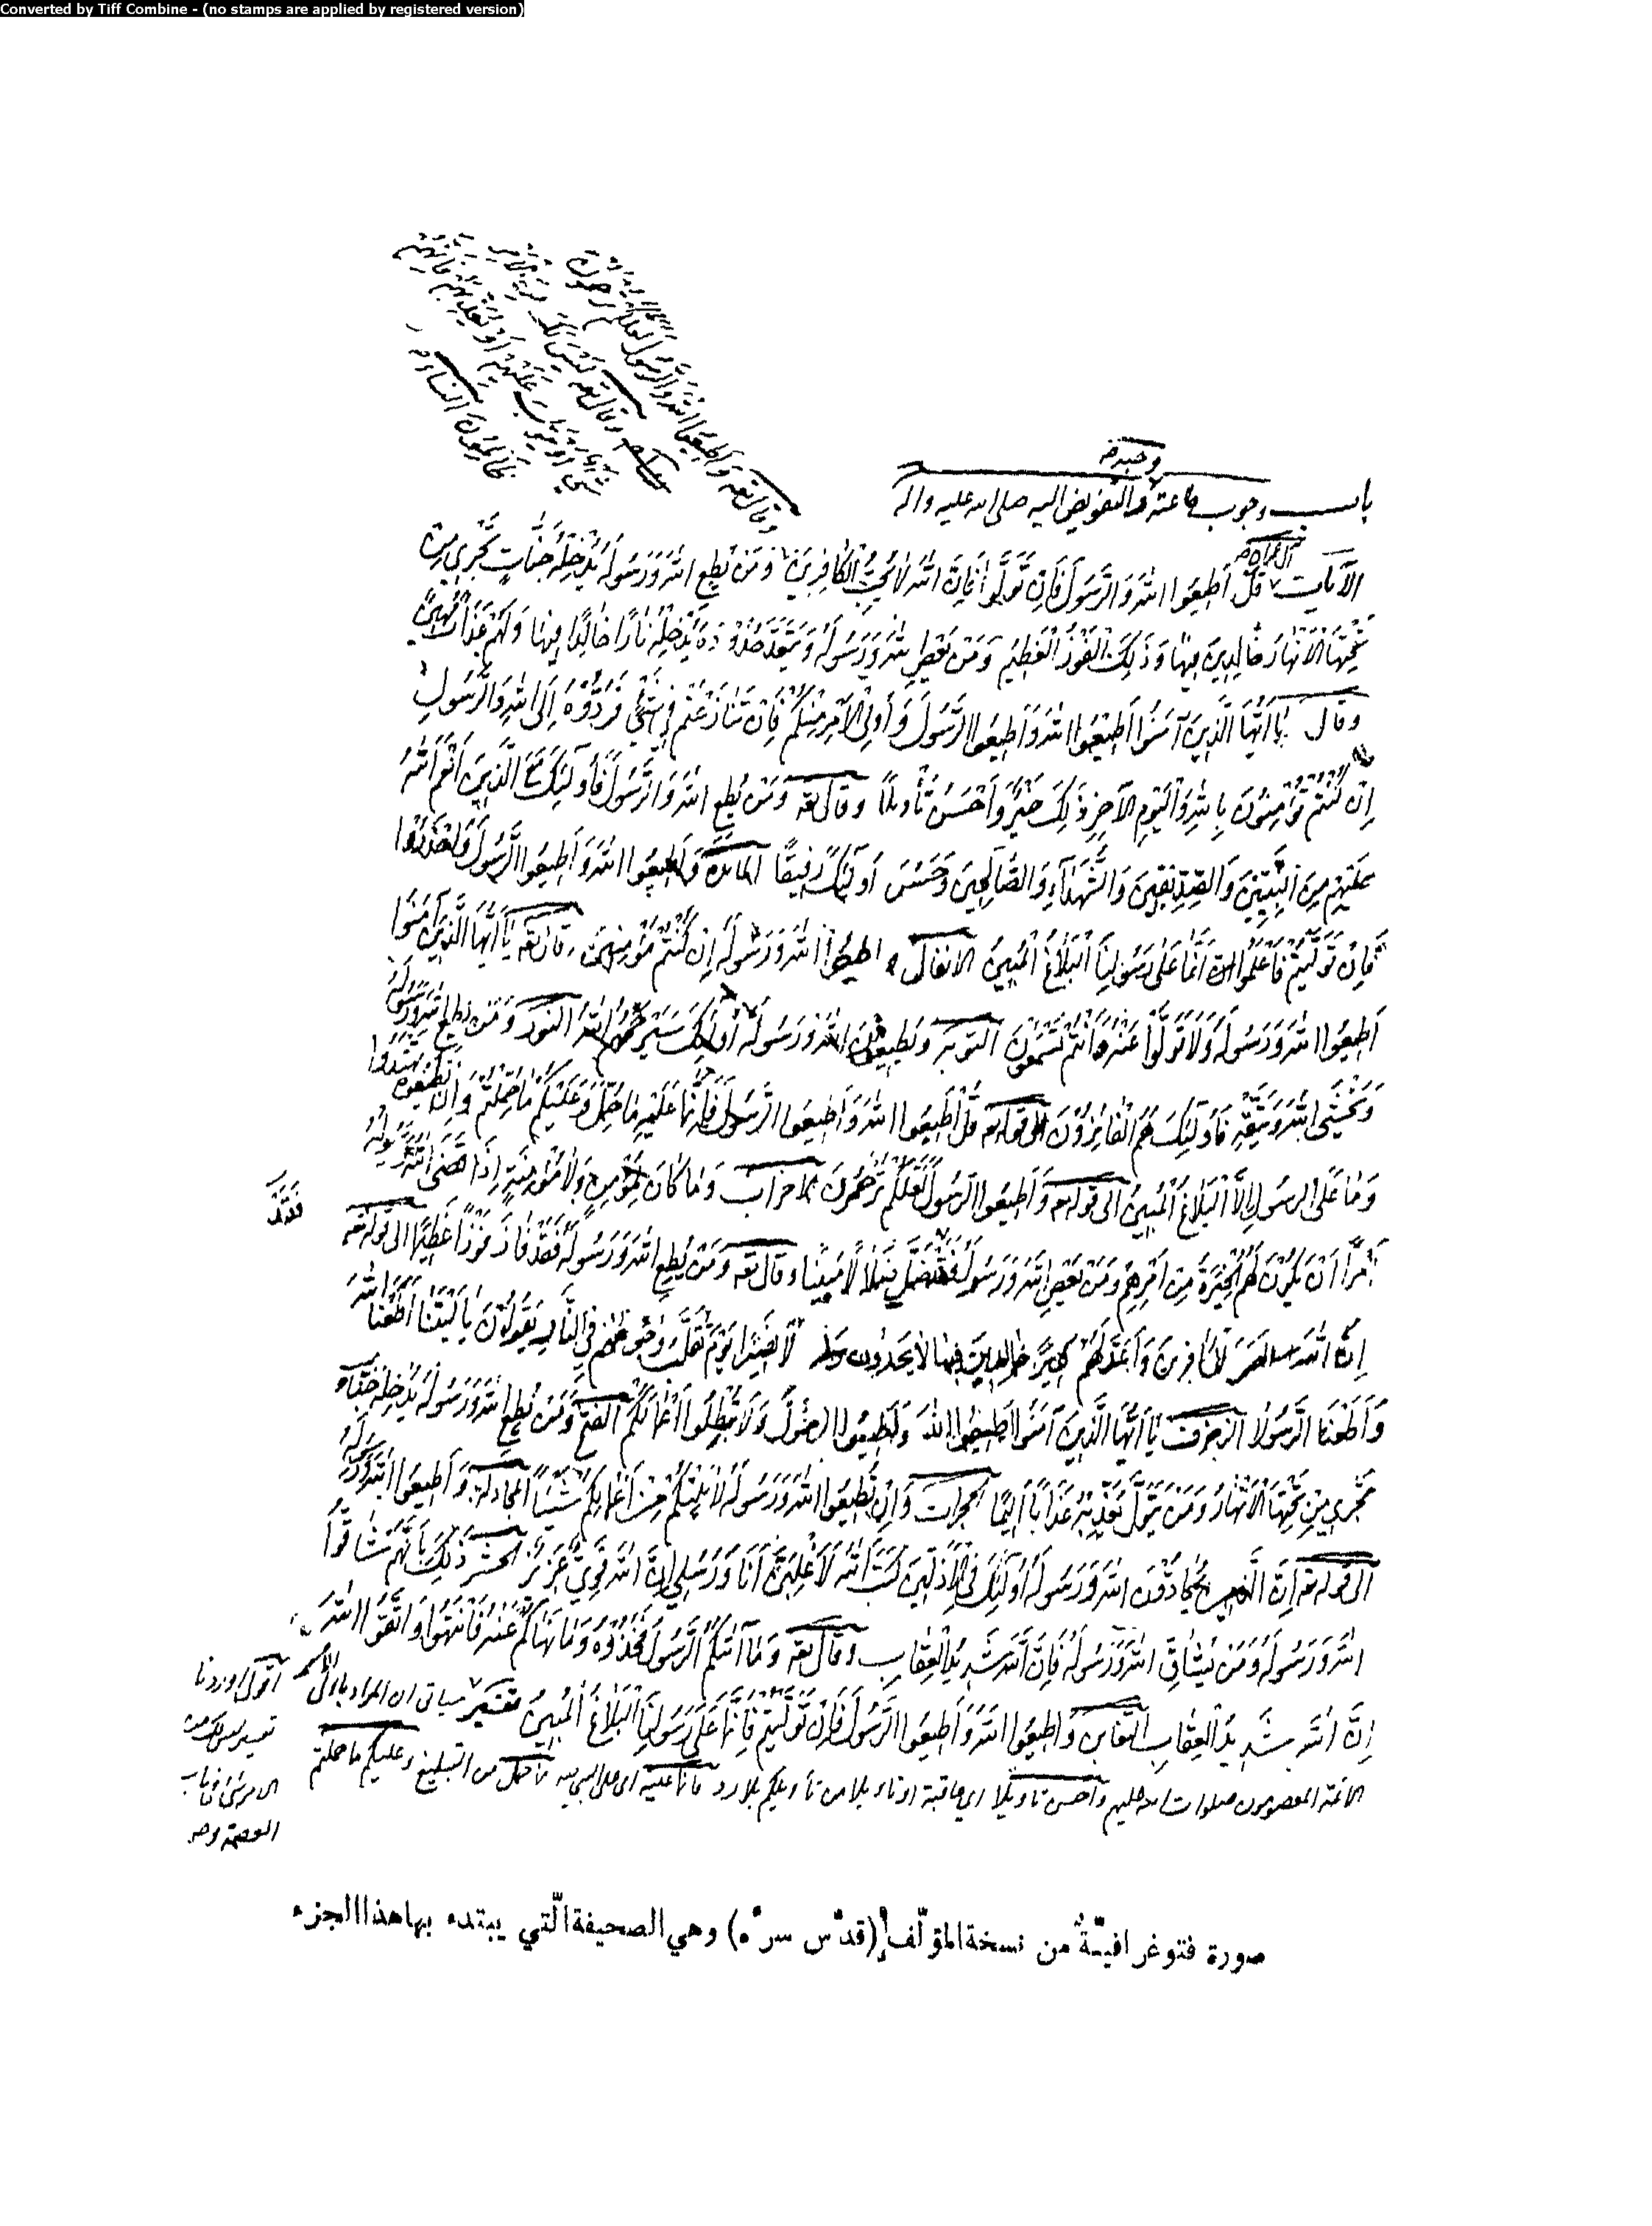 Converted by Tiff Combine - (no stamps are applied by registered version)
وقال تعه وَأَطِيعُوا اللهَ وَالرَّسُولَ لَعَلَّكُمْ تُرْحَمُونَ
وقال تعه لَيْسَ لَكَ مِنَ الْأَمْرِ
شَيْءٌ أَوْ يَتُوبَ عَلَيْهِمْ أَوْ يُعَذِّبَهُمْ فَإِنَّهُمْ
ظَالِمُونَ النساء
وحبه
باب وجوب طاعته والتفويض اليه صلى الله عليه واله
آل عمران
الآيات قُلْ أَطِيعُوا اللهَ وَالرَّسُولَ فَإِنْ تَوَلَّوْا فَإِنَّ اللهَ لَا يُحِبُّ الْكَافِرِينَ وَمَنْ يُطِعِ اللهَ وَرَسُولَهُ يُدْخِلْهُ جَنَّاتٍ تَجْرِي مِنْ
تَحْتِهَا الْأَنْهَارُ خَالِدِينَ فِيهَا وَذَلِكَ الْفَوْزُ الْعَظِيمُ وَمَنْ يَعْصِ اللهَ وَرَسُولَهُ وَيَتَعَدَّ حُدُودَهُ يُدْخِلْهُ نَارًا خَالِدًا فِيهَا وَلَهُ عَذَابٌ مُهِينٌ
وقال يَا أَيُّهَا الَّذِينَ آمَنُوا أَطِيعُوا اللهَ وَأَطِيعُوا الرَّسُولَ وَأُولِي الْأَمْرِ مِنْكُمْ فَإِنْ تَنَازَعْتُمْ فِي شَيْءٍ فَرُدُّوهُ إِلَى اللهِ وَالرَّسُولِ
إِنْ كُنْتُمْ تُؤْمِنُونَ بِاللهِ وَالْيَوْمِ الْآخِرِ ذَلِكَ خَيْرٌ وَأَحْسَنُ تَأْوِيلًا وقال تعه وَمَنْ يُطِعِ اللهَ وَالرَّسُولَ فَأُولَئِكَ مَعَ الَّذِينَ أَنْعَمَ اللهُ
عَلَيْهِمْ مِنَ النَّبِيِّينَ وَالصِّدِّيقِينَ وَالشُّهَدَاءِ وَالصَّالِحِينَ وَحَسُنَ أُولَئِكَ رَفِيقًا المائدة وَأَطِيعُوا اللهَ وَأَطِيعُوا الرَّسُولَ وَاحْذَرُوا
فَإِنْ تَوَلَّيْتُمْ فَاعْلَمُوا أَنَّمَا عَلَى رَسُولِنَا الْبَلَاغُ الْمُبِينُ الانفال وَأَطِيعُوا اللهَ وَرَسُولَهُ إِنْ كُنْتُمْ مُؤْمِنِينَ وقال تعه يَا أَيُّهَا الَّذِينَ آمَنُوا
أَطِيعُوا اللهَ وَرَسُولَهُ وَلَا تَوَلَّوْا عَنْهُ وَأَنْتُمْ تَسْمَعُونَ التوبة وَيُطِيعُونَ اللهَ وَرَسُولَهُ أُولَئِكَ سَيَرْحَمُهُمُ اللهُ النور وَمَنْ يُطِعِ اللهَ وَرَسُولَهُ
وَيَخْشَى اللهَ وَيَتَّقْهِ فَأُولَئِكَ هُمُ الْفَائِزُونَ الى قوله تعه قُلْ أَطِيعُوا اللهَ وَأَطِيعُوا الرَّسُولَ فَإِنَّمَا عَلَيْهِ مَا حُمِّلَ وَعَلَيْكُمْ مَا حُمِّلْتُمْ وَإِنْ تُطِيعُوهُ تَهْتَدُوا
وَمَا عَلَى الرَّسُولِ إِلَّا الْبَلَاغُ الْمُبِينُ الى قوله تعه وَأَطِيعُوا الرَّسُولَ لَعَلَّكُمْ تُرْحَمُونَ الاحزاب وَمَا كَانَ لِمُؤْمِنٍ وَلَا مُؤْمِنَةٍ إِذَا قَضَى اللهُ وَرَسُولُهُ
أَمْرًا أَنْ يَكُونَ لَهُمُ الْخِيَرَةُ مِنْ أَمْرِهِمْ وَمَنْ يَعْصِ اللهَ وَرَسُولَهُ فَقَدْ ضَلَّ ضَلَالًا مُبِينًا وقال تعه وَمَنْ يُطِعِ اللهَ وَرَسُولَهُ فَقَدْ فَازَ فَوْزًا عَظِيمًا الى قوله تعه
إِنَّ اللهَ لَعَنَ الْكَافِرِينَ وَأَعَدَّ لَهُمْ سَعِيرًا خَالِدِينَ فِيهَا لَا يَجِدُونَ وَلِيًّا وَلَا نَصِيرًا يَوْمَ تُقَلَّبُ وُجُوهُهُمْ فِي النَّارِ يَقُولُونَ يَا لَيْتَنَا أَطَعْنَا اللهَ
وَأَطَعْنَا الرَّسُولَا الزخرف يَا أَيُّهَا الَّذِينَ آمَنُوا أَطِيعُوا اللهَ وَأَطِيعُوا الرَّسُولَ وَلَا تُبْطِلُوا أَعْمَالَكُمْ الفتح وَمَنْ يُطِعِ اللهَ وَرَسُولَهُ يُدْخِلْهُ جَنَّاتٍ
تَجْرِي مِنْ تَحْتِهَا الْأَنْهَارُ وَمَنْ يَتَوَلَّ يُعَذِّبْهُ عَذَابًا أَلِيمًا الحجرات وَإِنْ تُطِيعُوا اللهَ وَرَسُولَهُ لَا يَلِتْكُمْ مِنْ أَعْمَالِكُمْ شَيْئًا المجادلة وَأَطِيعُوا اللهَ وَرَسُولَهُ
الى قوله تعه إِنَّ الَّذِينَ يُحَادُّونَ اللهَ وَرَسُولَهُ أُولَئِكَ فِي الْأَذَلِّينَ كَتَبَ اللهُ لَأَغْلِبَنَّ أَنَا وَرُسُلِي إِنَّ اللهَ قَوِيٌّ عَزِيزٌ الحشر ذَلِكَ بِأَنَّهُمْ شَاقُّوا
اللهَ وَرَسُولَهُ وَمَنْ يُشَاقِّ اللهَ وَرَسُولَهُ فَإِنَّ اللهَ شَدِيدُ الْعِقَابِ وقال تعه وَمَا آتَاكُمُ الرَّسُولُ فَخُذُوهُ وَمَا نَهَاكُمْ عَنْهُ فَانْتَهُوا وَاتَّقُوا اللهَ
إِنَّ اللهَ شَدِيدُ الْعِقَابِ التغابن وَأَطِيعُوا اللهَ وَأَطِيعُوا الرَّسُولَ فَإِنْ تَوَلَّيْتُمْ فَإِنَّمَا عَلَى رَسُولِنَا الْبَلَاغُ الْمُبِينُ تفسير سياتى ان المراد باولى الامر
الائمة المعصومون صلوات الله عليهم وأحسن تاويلا اي عاقبة او تاويلا من تأويلكم بلا رد فانما عليه اى على النبي ما حمل من التبليغ وعليكم ما حملتم
اقول اوردنا
تفسير ليس لك من
الامر شئ في باب
العصمة
صورة فتوغرافيّة من نسخة المؤلّف (قدّس سرّه) وهي الصحيفة الّتي يبتدء بها هذا الجزء